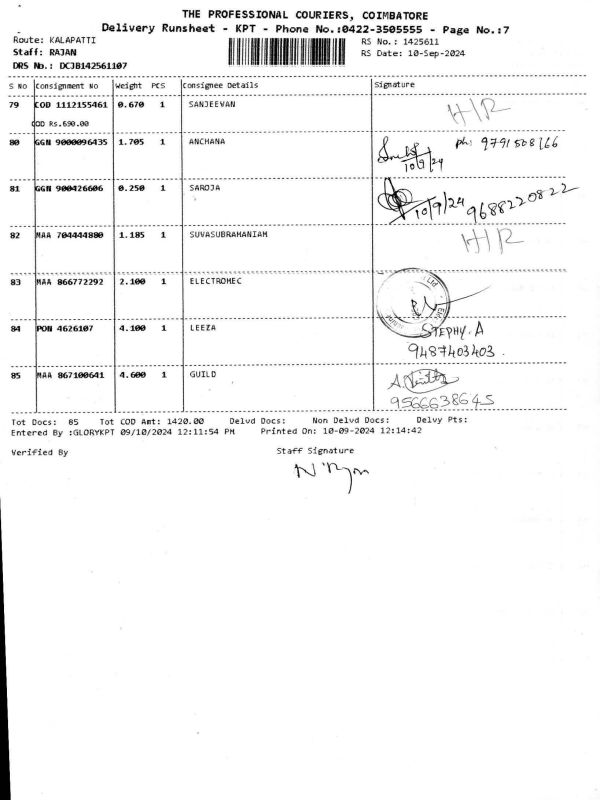 THE PROFESSIONAL COURIERS, COIMBATORE
Delivery Runsheet - KPT - Phone No.:0422-3505555 - Page No.:7
Route: KALAPATTI
RS No.: 1425611
Staff: RAJAN
RS Date: 10-Sep-2024
DRS No.: DCJB142561107
S No Consignment No Weight PCS Consignee Details Signature
79 COD 1112155461 0.670 1 SANJEEVAN H/R
COD Rs.690.00
80 GGN 9000096435 1.705 1 ANCHANA ph: 9791508166
10/9/24
81 GGN 900426606 0.250 1 SAROJA
10/9/24 9688220822
82 MAA 704444880 1.185 1 SUVASUBRAMANIAM H/R
83 MAA 866772292 2.100 1 ELECTROMEC
84 PON 4626107 4.100 1 LEEZA STEPHY. A
9487403403.
85 MAA 867100641 4.600 1 GUILD
9566638645
Tot Docs: 85 Tot COD Amt: 1420.00 Delvd Docs: Non Delvd Docs: Delvy Pts:
Entered By :GLORYKPT 09/10/2024 12:11:54 PM Printed On: 10-09-2024 12:14:42
Verified By Staff Signature